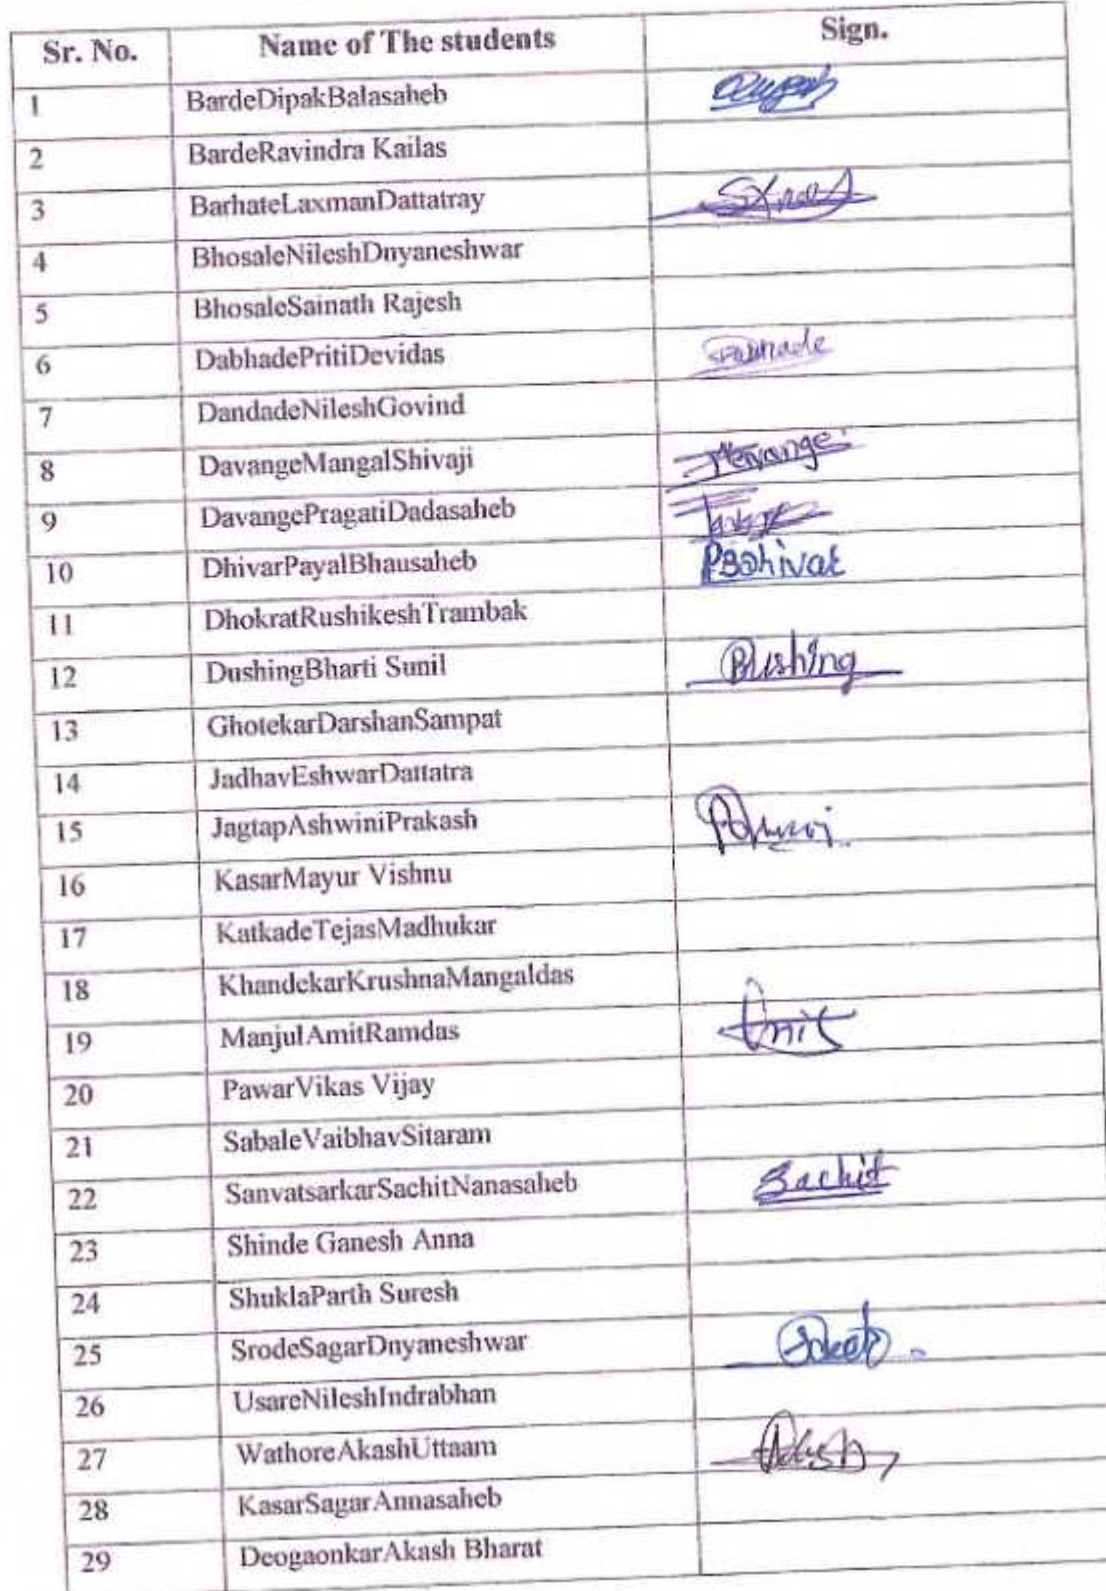 Sr. No. Name of The students Sign.
1 BardeDipakBalasaheb
2 BardeRavindra Kailas
3 BarhateLaxmanDattatray
4 BhosaleNileshDnyaneshwar
5 BhosaleSainath Rajesh
6 DabhadePritiDevidas
7 DandadeNileshGovind
8 DavangeMangalShivaji
9 DavangePragatiDadasaheb
10 DhivarPayalBhausaheb PBDhivar
11 DhokratRushikeshTrambak
12 DushingBharti Sunil Bushing
13 GhotekarDarshanSampat
14 JadhavEshwarDattatra
15 JagtapAshwiniPrakash
16 KasarMayur Vishnu
17 KatkadeTejasMadhukar
18 KhandekarKrushnaMangaldas
19 ManjulAmitRamdas
20 PawarVikas Vijay
21 SabaleVaibhavSitaram
22 SanvatsarkarSachitNanasaheb Sachit
23 Shinde Ganesh Anna
24 ShuklaParth Suresh
25 SrodeSagarDnyaneshwar
26 UsareNileshIndrabhan
27 WathoreAkashUttaam
28 KasarSagarAnnasaheb
29 DeogaonkarAkash Bharat